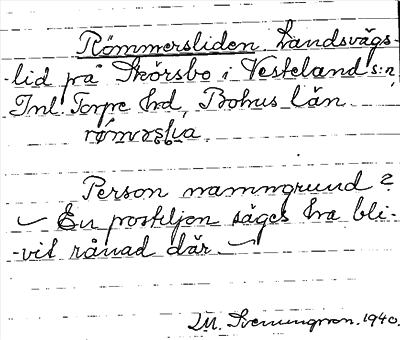 Römmersliden landsvägs-
lid på Skörsbo i Vesteland s:n,
Inl. Torpe hd, Bohus län.
Person namngrund?
En postiljon säges ha bli-
vit rånad där
M. Svenungsson. 1940.